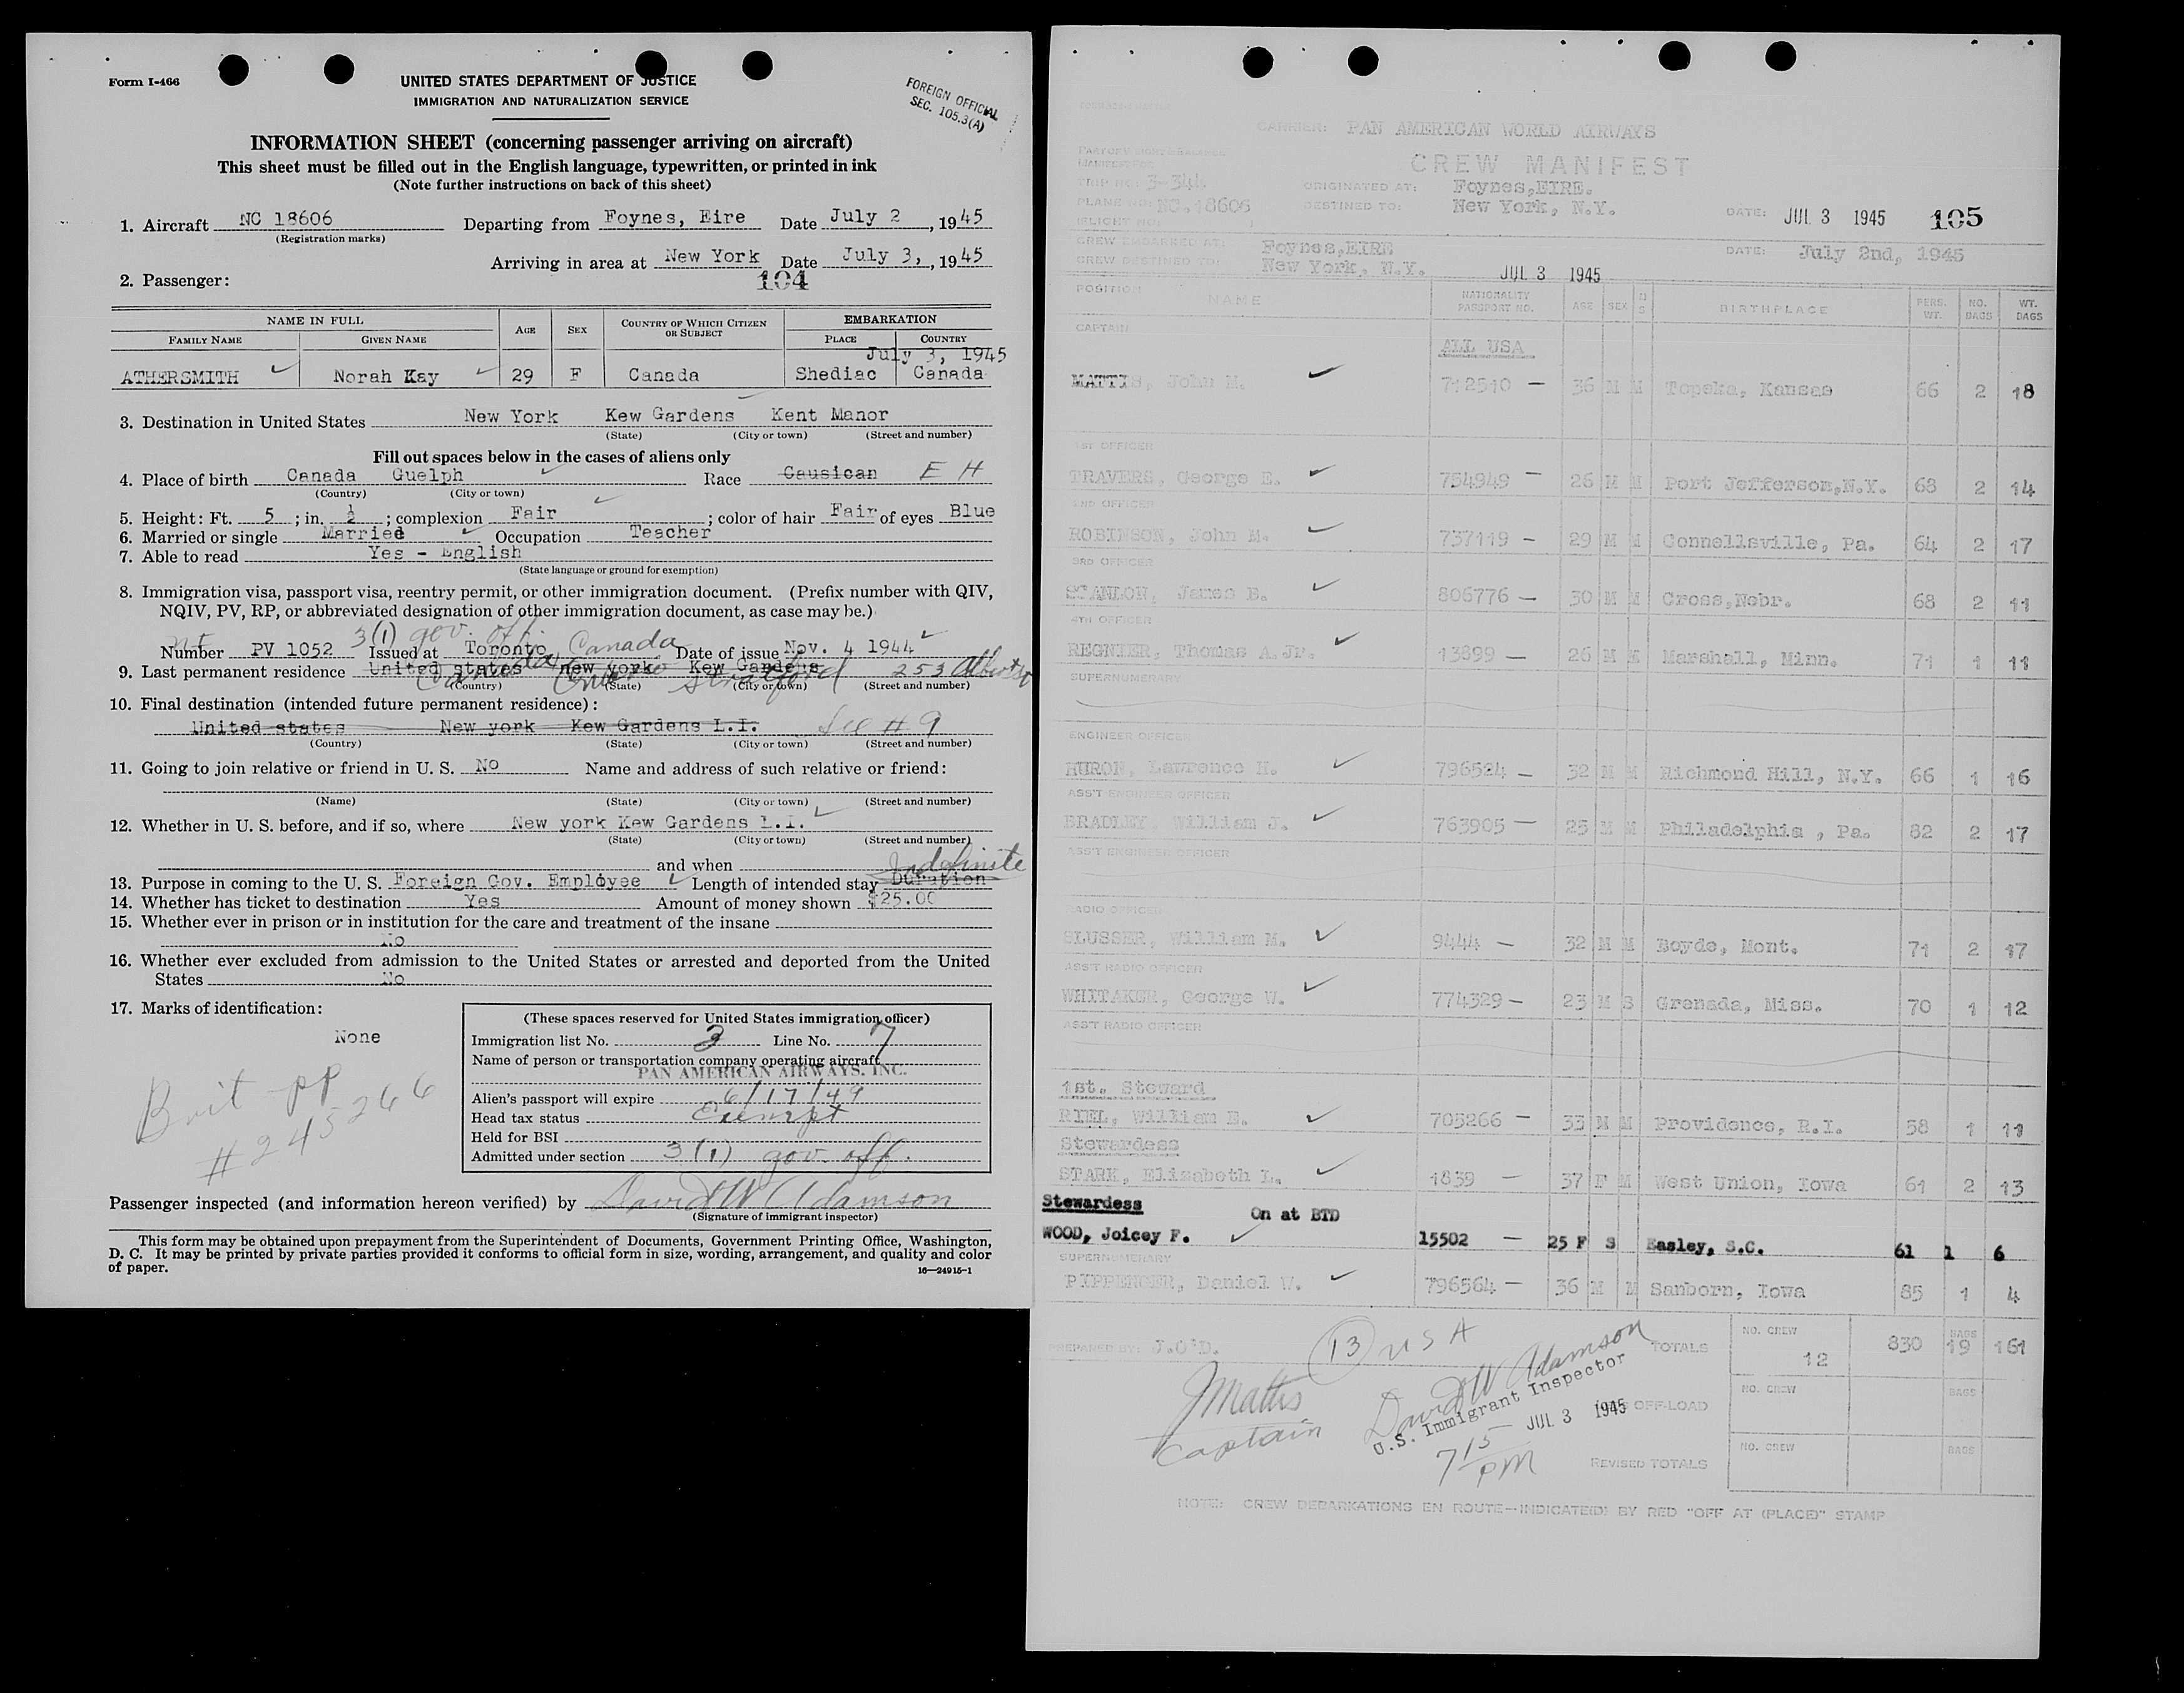 Form I-466
UNITED STATES DEPARTMENT OF JUSTICE
IMMIGRATION AND NATURALIZATION SERVICE
FOREIGN OFFICIAL
SEC. 105.3(A)
INFORMATION SHEET (concerning passenger arriving on aircraft)
This sheet must be filled out in the English language, typewritten, or printed in ink
(Note further instructions on back of this sheet)
1. Aircraft NC 18606 Departing from Foynes, Eire Date July 2, 1945
(Registration marks)
Arriving in area at New York Date July 3, 1945
2. Passenger: 104
NAME IN FULL AGE SEX COUNTRY OF WHICH CITIZEN OR SUBJECT EMBARKATION
FAMILY NAME GIVEN NAME PLACE COUNTRY
July 3, 1945
ATHERSMITH Norah Kay 29 F Canada Shediac Canada
3. Destination in United States New York Kew Gardens Kent Manor
(State) (City or town) (Street and number)
Fill out spaces below in the cases of aliens only
4. Place of birth Canada Guelph Race Causican E H
(Country) (City or town)
5. Height: Ft. 5; in. ½; complexion Fair; color of hair Fair of eyes Blue
6. Married or single Married Occupation Teacher
7. Able to read Yes - English
(State language or ground for exemption)
8. Immigration visa, passport visa, reentry permit, or other immigration document. (Prefix number with QIV,
NQIV, PV, RP, or abbreviated designation of other immigration document, as case may be.)
3(1) gov. off.
Number PV 1052 Issued at Toronto Canada Date of issue Nov. 4 1944
9. Last permanent residence United states new york Kew Gardens
Canada Ontario Stratford 253 Albert St
(Country) (State) (City or town) (Street and number)
10. Final destination (intended future permanent residence):
United states New york Kew Gardens L.I. See # 9
(Country) (State) (City or town) (Street and number)
11. Going to join relative or friend in U. S. No Name and address of such relative or friend:
(Name) (State) (City or town) (Street and number)
12. Whether in U. S. before, and if so, where New york Kew Gardens L.I.
(State) (City or town) (Street and number)
and when
Indefinite
13. Purpose in coming to the U. S. Foreign Gov. Employee Length of intended stay Duration
14. Whether has ticket to destination Yes Amount of money shown $25.00
15. Whether ever in prison or in institution for the care and treatment of the insane
No
16. Whether ever excluded from admission to the United States or arrested and deported from the United
States No
17. Marks of identification:
None
Brit PP
# 245266
(These spaces reserved for United States immigration officer)
Immigration list No. 3 Line No. 7
Name of person or transportation company operating aircraft
PAN AMERICAN AIRWAYS, INC.
Alien's passport will expire 6/17/49
Head tax status Exempt
Held for BSI
Admitted under section 3(1) gov. off.
Passenger inspected (and information hereon verified) by David W Adamson
(Signature of immigrant inspector)
This form may be obtained upon prepayment from the Superintendent of Documents, Government Printing Office, Washington,
D. C. It may be printed by private parties provided it conforms to official form in size, wording, arrangement, and quality and color
of paper. 16—24915-1
CARRIER: PAN AMERICAN WORLD AIRWAYS
CREW MANIFEST
TRIP NO: 3-344 ORIGINATED AT: Foynes,EIRE.
PLANE NO: NC.18606 DESTINED TO: New York, N.Y. DATE: JUL 3 1945 105
FLIGHT NO:
CREW EMBARKED AT: Foynes,EIRE DATE: July 2nd, 1945
CREW DESTINED TO: New York, N.Y. JUL 3 1945
POSITION NAME NATIONALITY PASSPORT NO. AGE SEX M S BIRTHPLACE PERS. WT. NO. BAGS WT. BAGS
CAPTAIN
ALL USA
MATTIS, John M. 712510 — 36 M M Topeka, Kansas 66 2 18
1ST OFFICER
TRAVERS, George E. 754949 — 26 M M Port Jefferson,N.Y. 68 2 14
2ND OFFICER
ROBINSON, John M. 737119 — 29 M M Connellsville, Pa. 64 2 17
3RD OFFICER
SCANLON, James B. 806776 — 30 M M Cross,Nebr. 68 2 11
4TH OFFICER
REGNIER, Thomas A.Jr. 13899 — 26 M M Marshall, Minn. 71 1 11
SUPERNUMERARY
ENGINEER OFFICER
HURON, Lawrence H. 796524 — 32 M M Richmond Hill, N.Y. 66 1 16
ASS'T ENGINEER OFFICER
BRADLEY, William J. 763905 — 25 M M Philadelphia , Pa. 82 2 17
ASS'T ENGINEER OFFICER
RADIO OFFICER
SLUSSER, William M. 9444 — 32 M M Boyds, Mont. 71 2 17
ASS'T RADIO OFFICER
WHITAKER, George W. 774329 — 23 M S Grenada, Miss. 70 1 12
ASS'T RADIO OFFICER
1st. Steward
RIEL, William E. 705266 — 33 M M Providence, R.I. 58 1 11
Stewardess
STARK, Elizabeth L. 1839 — 37 F M West Union, Iowa 61 2 13
Stewardess On at BTD
WOOD, Joicey F. 15502 — 25 F S Easley, S.C. 61 1 6
SUPERNUMERARY
PIPPENGER, Daniel W. 796564 — 36 M M Sanborn, Iowa 85 1 4
PREPARED BY: J.O'D. 13 USA TOTALS NO. CREW 12 830 BAGS 19 161
JMattis
Captain
David W Adamson
U.S. Immigrant Inspector
JUL 3 1945
7 15 PM
OFF-LOAD NO. CREW BAGS
REVISED TOTALS NO. CREW BAGS
NOTE: CREW DEBARKATIONS EN ROUTE—INDICATE(D) BY RED "OFF AT (PLACE)" STAMP